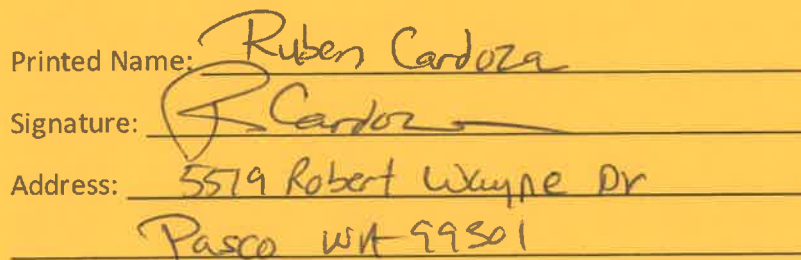 Printed Name: Ruben Cardoza
Signature: R Cardoza
Address: 5519 Robert Wayne Dr
Pasco WA 99301